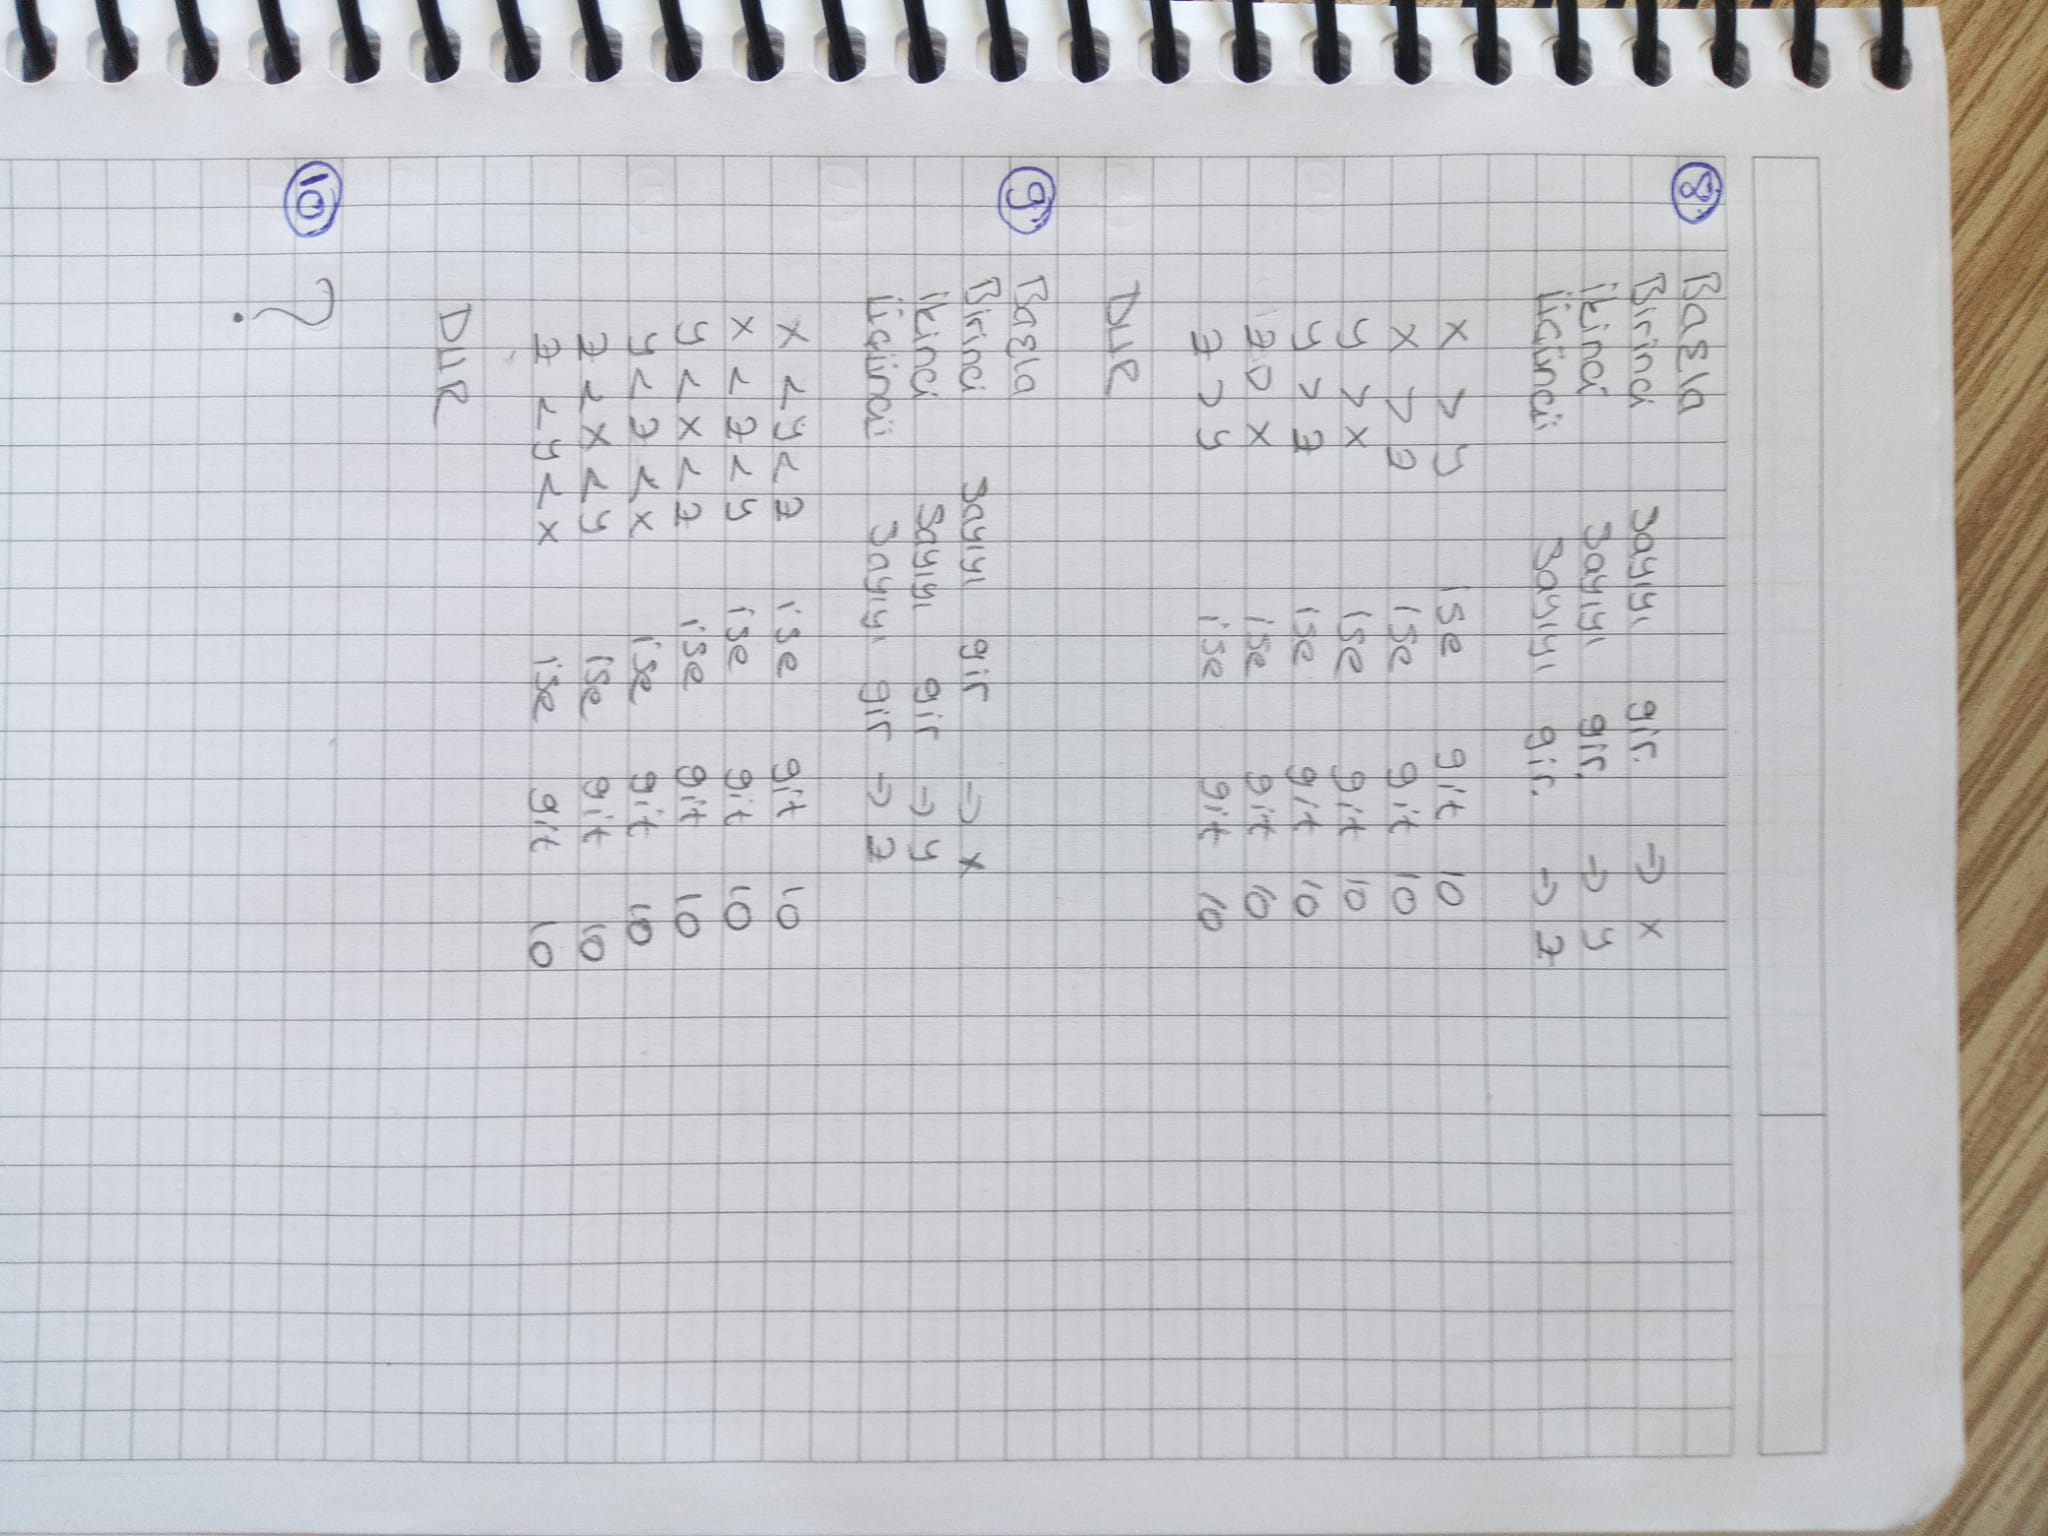 8 Başla
Birinci sayıyı gir. → x
İkinci sayıyı gir. → y
Üçüncü sayıyı gir. → z
x > y ise git 10
x > z ise git 10
y > x ise git 10
y > z ise git 10
z > x ise git 10
z > y ise git 10
DUR
9 Başla
Birinci sayıyı gir → x
İkinci sayıyı gir → y
Üçüncü sayıyı gir → z
x < y < z ise git 10
x < z < y ise git 10
y < x < z ise git 10
y < z < x ise git 10
z < x < y ise git 10
z < y < x ise git 10
DUR
10 ?